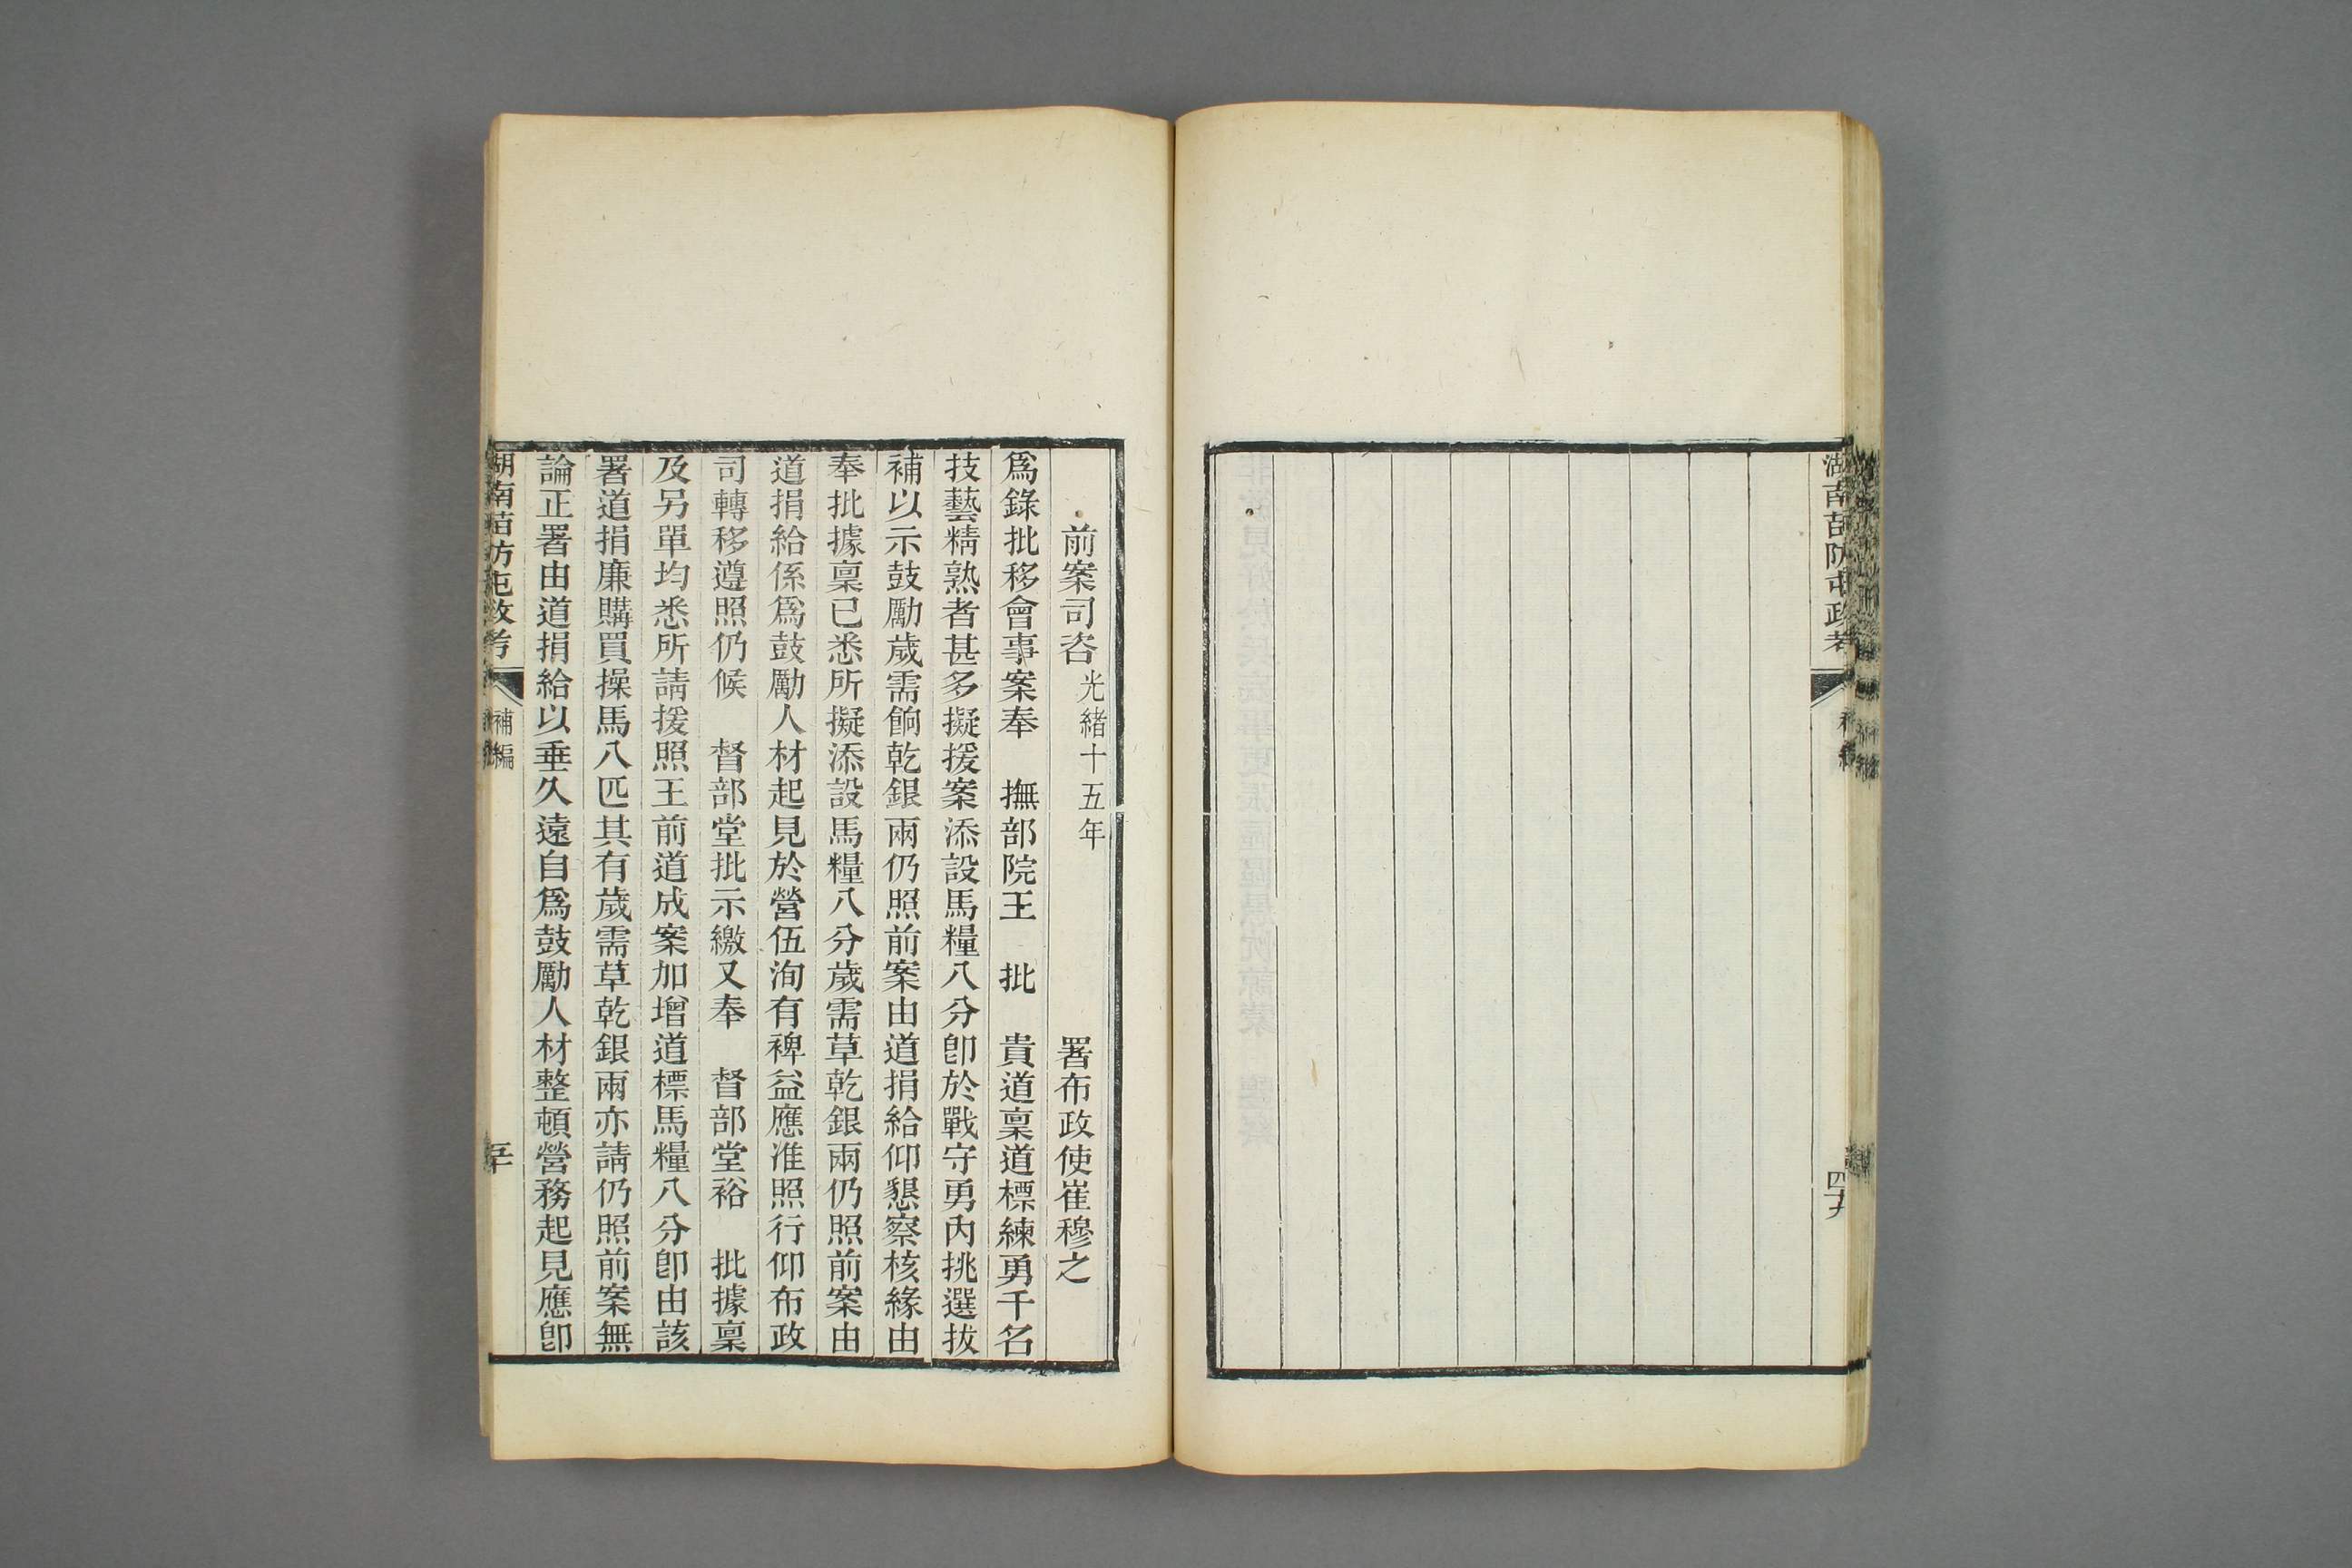 湖南苗防屯政考
補編
四十九
前案司咨 光緒十五年 署布政使崔穆之
爲錄批移會事案奉 撫部院王 批 貴道稟道標練勇千名
技藝精熟者甚多擬援案添設馬糧八分卽於戰守勇內挑選拔
補以示鼓勵歲需餉乾銀兩仍照前案由道捐給仰懇察核緣由
奉批據稟已悉所擬添設馬糧八分歲需草乾銀兩仍照前案由
道捐給係爲鼓勵人材起見於營伍洵有裨益應准照行仰布政
司轉移遵照仍候 督部堂批示繳又奉 督部堂裕 批據稟
及另單均悉所請援照王前道成案加增道標馬糧八分卽由該
署道捐廉購買操馬八匹其有歲需草乾銀兩亦請仍照前案無
論正署由道捐給以垂久遠自爲鼓勵人材整頓營務起見應卽
湖南苗防屯政考
補編
五十